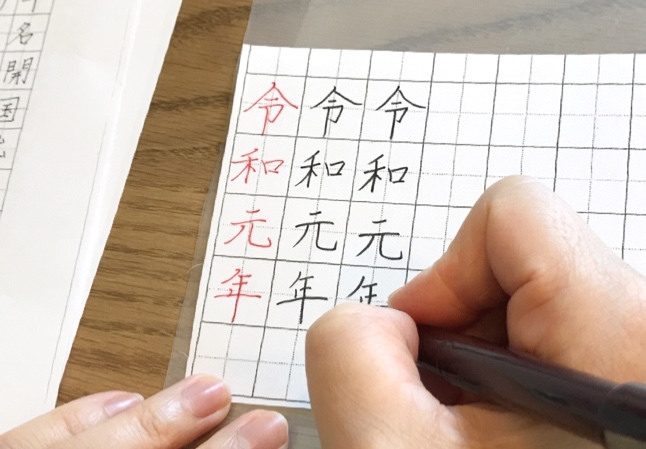 令和元年
令和元年
令和元年
名開国